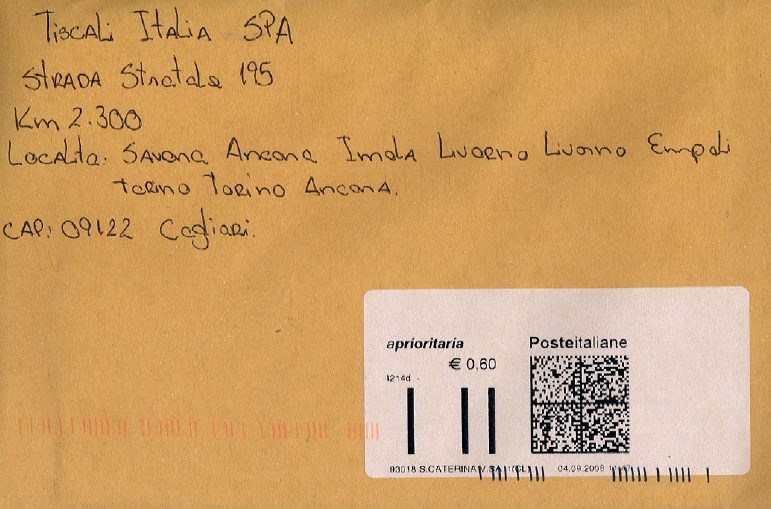 Tiscali Italia SPA
STRADA Statale 195
Km 2.300
Località: Savona Ancona Imola Livorno Livorno Empoli
Torino Torino Ancona.
CAP: 09122 Cagliari.
aprioritaria
Posteitaliane
€ 0,60
1214d
93018 S.CATERINA V.SA (CL)
04.09.2008